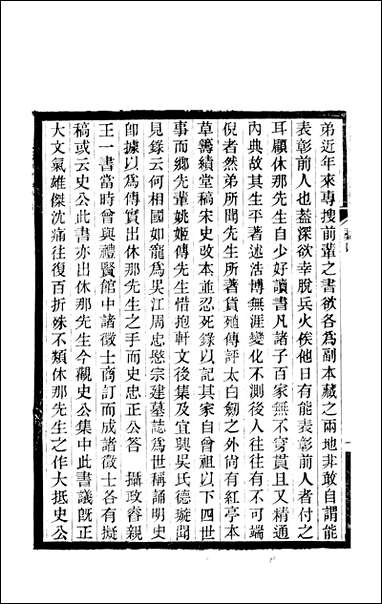 弟近年來專搜前輩之書欲各爲副本藏之兩地非敢自謂能
表彰前人也葢深欲幸脫兵火俟他日有能表彰前人者付之
耳顧休那先生自少好讀書凡諸子百家無不穿貫且又精通
內典故其生平著述浩博無涯變化不測後人往往有不可端
倪者然弟所聞先生所著貨殖傳評太白劒之外尙有紅亭本
草籌績堂稿宋史改本並忍死錄以記其家自曾祖以下四世
事而鄉先輩姚姬傳先生惜抱軒文後集及宜興吳氏德旋聞
見錄云何相國如寵爲吳江周忠愍宗建墓誌爲世稱誦明史
卽據以爲傳實出休那先生之手而史忠正公答　攝政睿親
王一書當時曾與禮賢館中諸徵士商訂而成諸徵士各有擬
稿或云史公此書亦出休那先生今觀史公集中此書議旣正
大文氣雄傑沈痛往復百折殊不類休那先生之作大抵史公